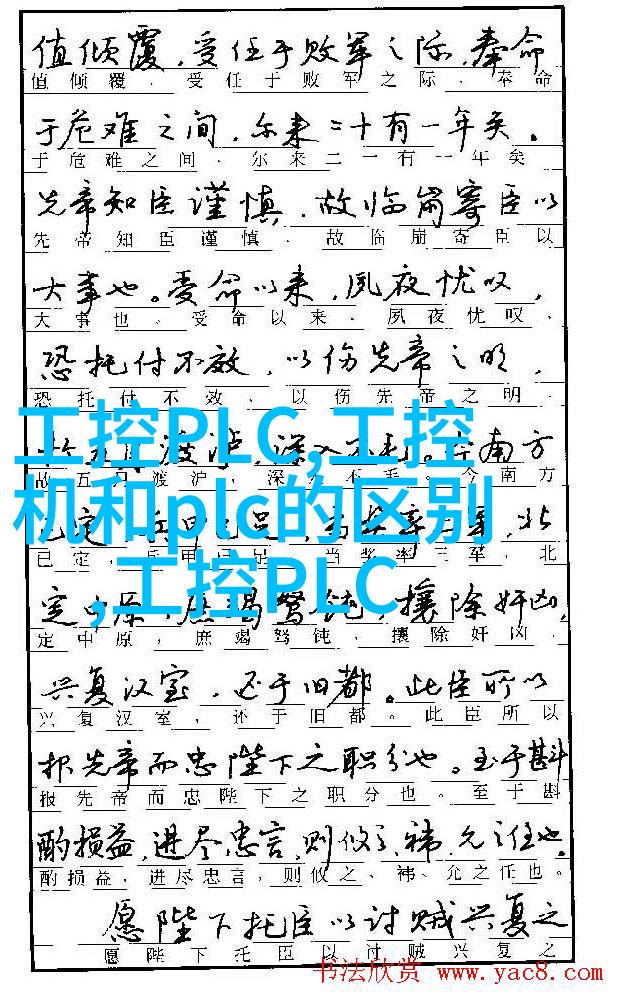 值倾覆，受任于败军之际，奉命
值倾覆，受任于败军之际，奉命
于危难之间，尔来二十有一年矣。
于危难之间，尔来二一有一年矣
先帝知臣谨慎，故临崩寄臣以
先帝知臣谨慎，故临崩寄臣以
大事也。受命以来，夙夜忧叹，
大事也。受命以来，夙夜忧叹，
恐托付不效，以伤先帝之明，
恐托付不效，以伤先帝之明，
工控PLC,工控
机和plc的区别
,工控PLC
渡泸，深入不毛。今南方
故五月渡泸，深入不毛。今南方
已定，兵甲已足，当奖率三军，北
已定，兵甲已足，当奖率三军，北
定中原，庶竭驽钝，攘除奸凶，
定中原，庶竭驽钝，攘除奸凶，
兴复汉室，还于旧都。此臣所以
兴复汉室，还于旧都。此臣所以
报先帝而忠陛下之职分也。至于斟
报先帝而忠陛下之职分也。至于斟
酌损益，进尽忠言，则攸之、祎、允之任也。
酌损益，进尽忠言，则攸之、祎、允之任也。
愿陛下托臣以讨贼兴复之
愿陛下托臣以讨贼兴复之
书法欣赏 www.yac8.com